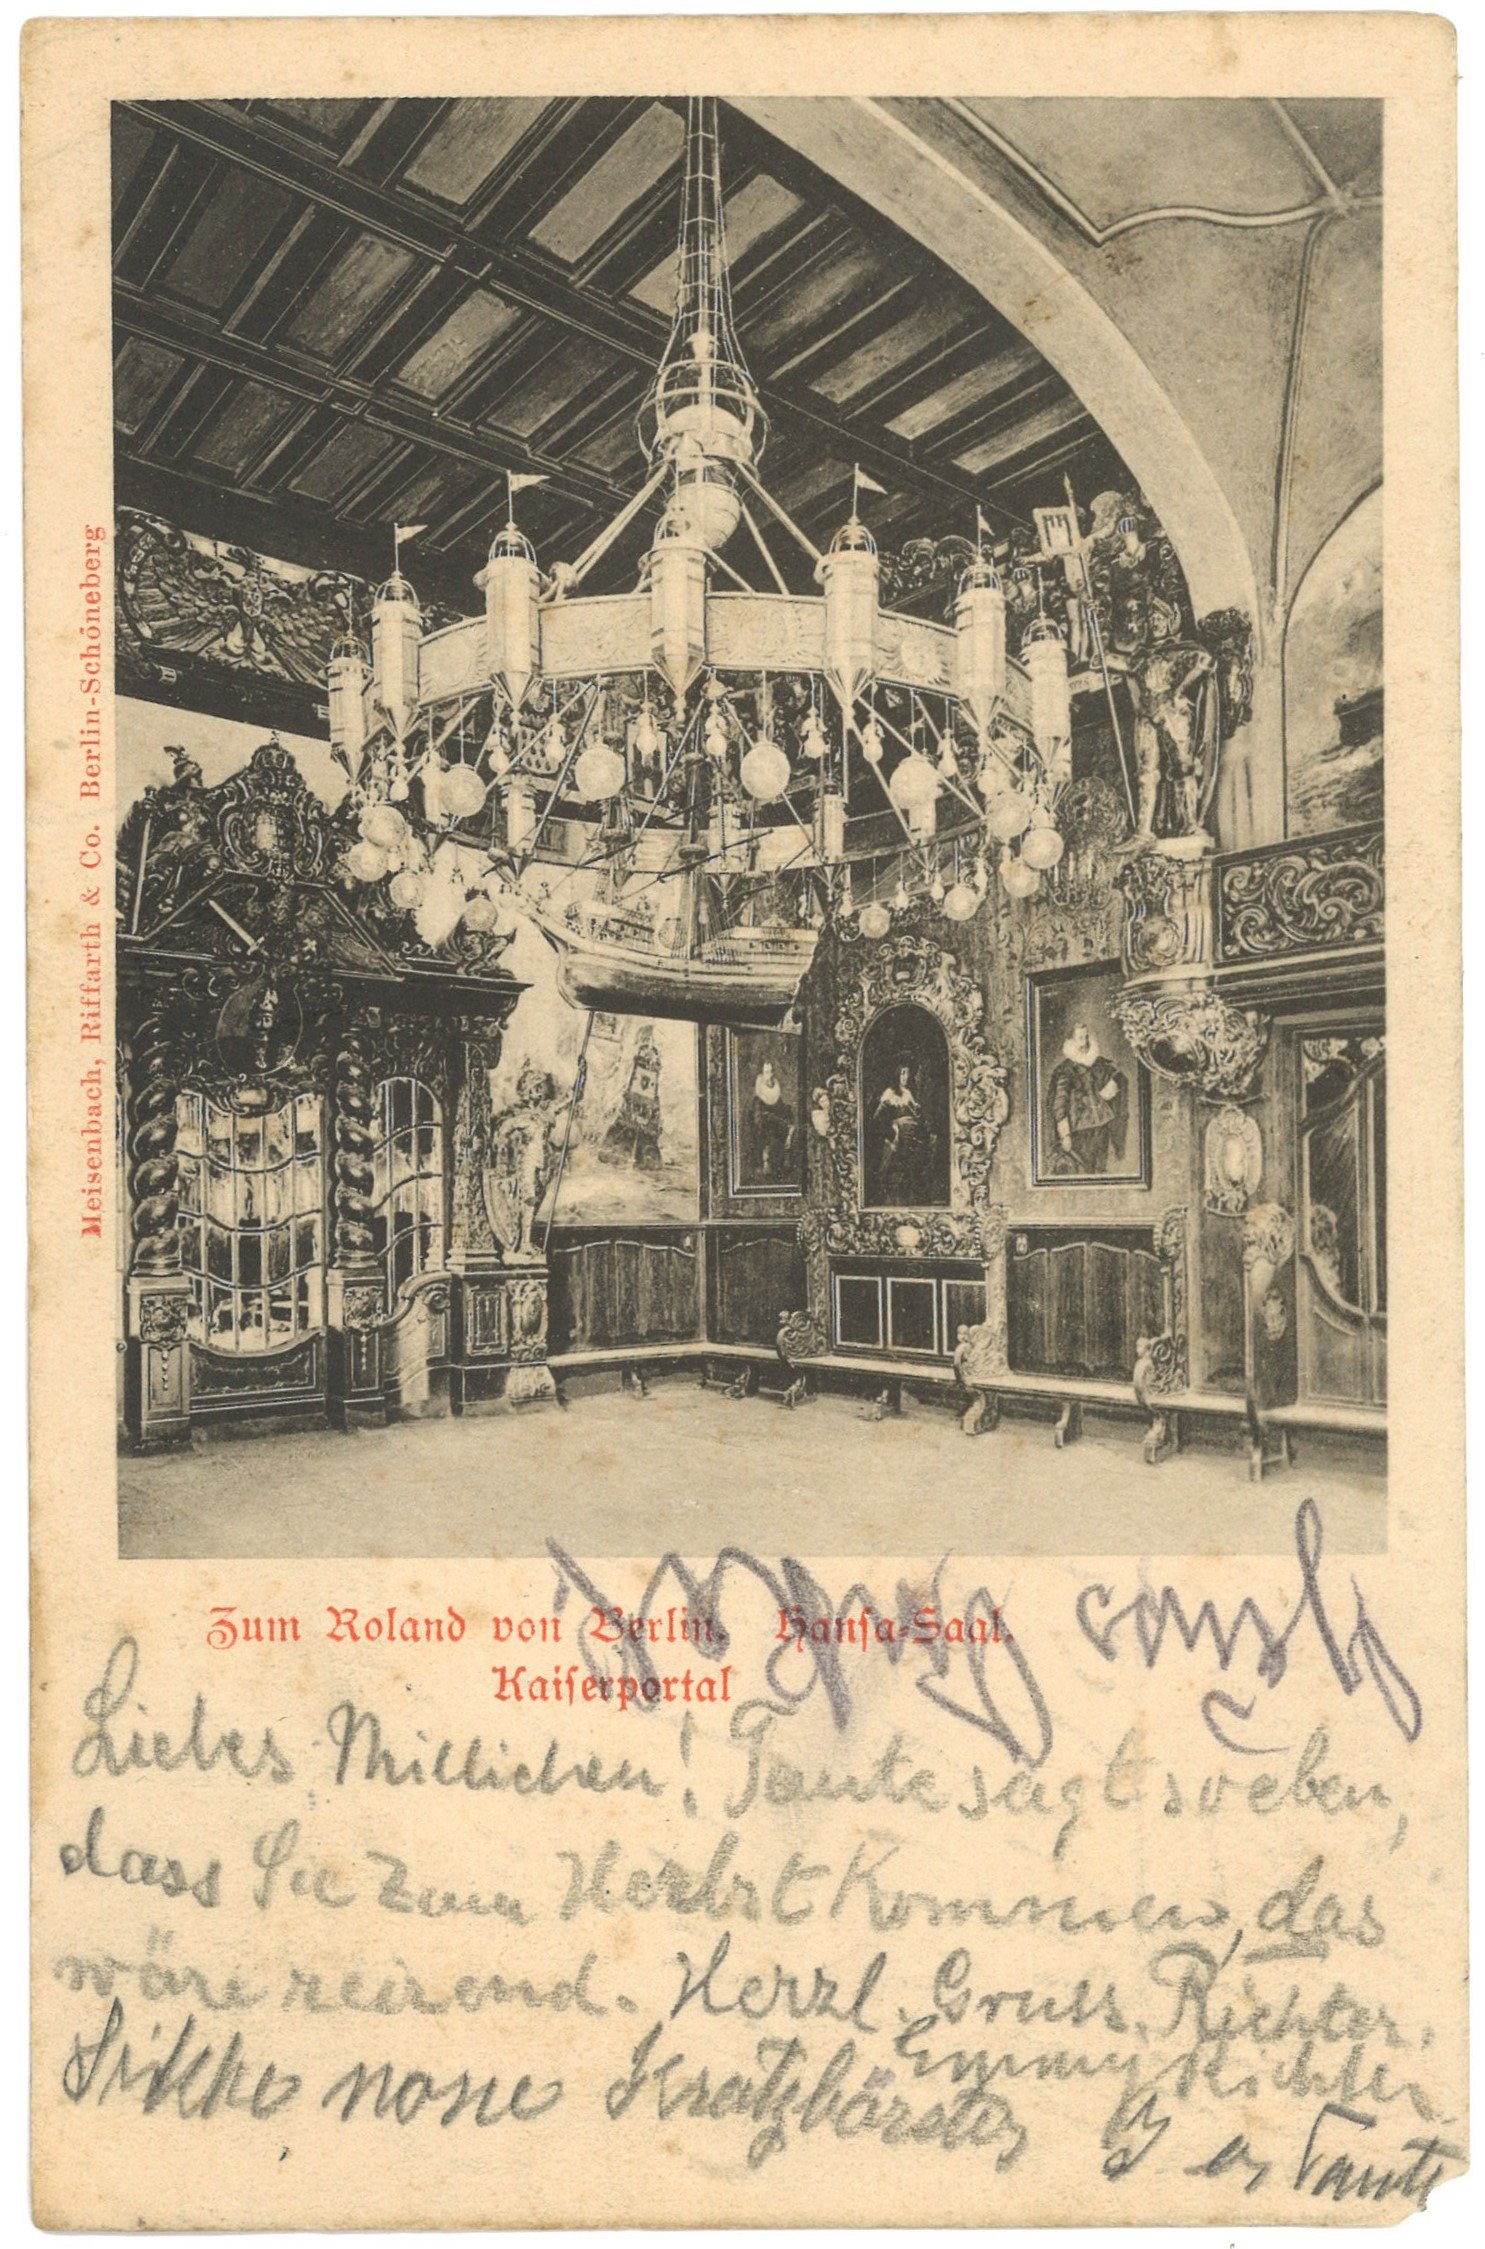 Meisenbach, Riffarth & Co. Berlin-Schöneberg
Zum Roland von Berlin. Hansa-Saal.
Kaiserportal
Liebes Millichen! Tante sagt soeben,
dass Sie zum Herbst kommen, das
wäre reizend. Herzl. Gruss. Richter.
Emmy Richter
Kratzbürste
Tante